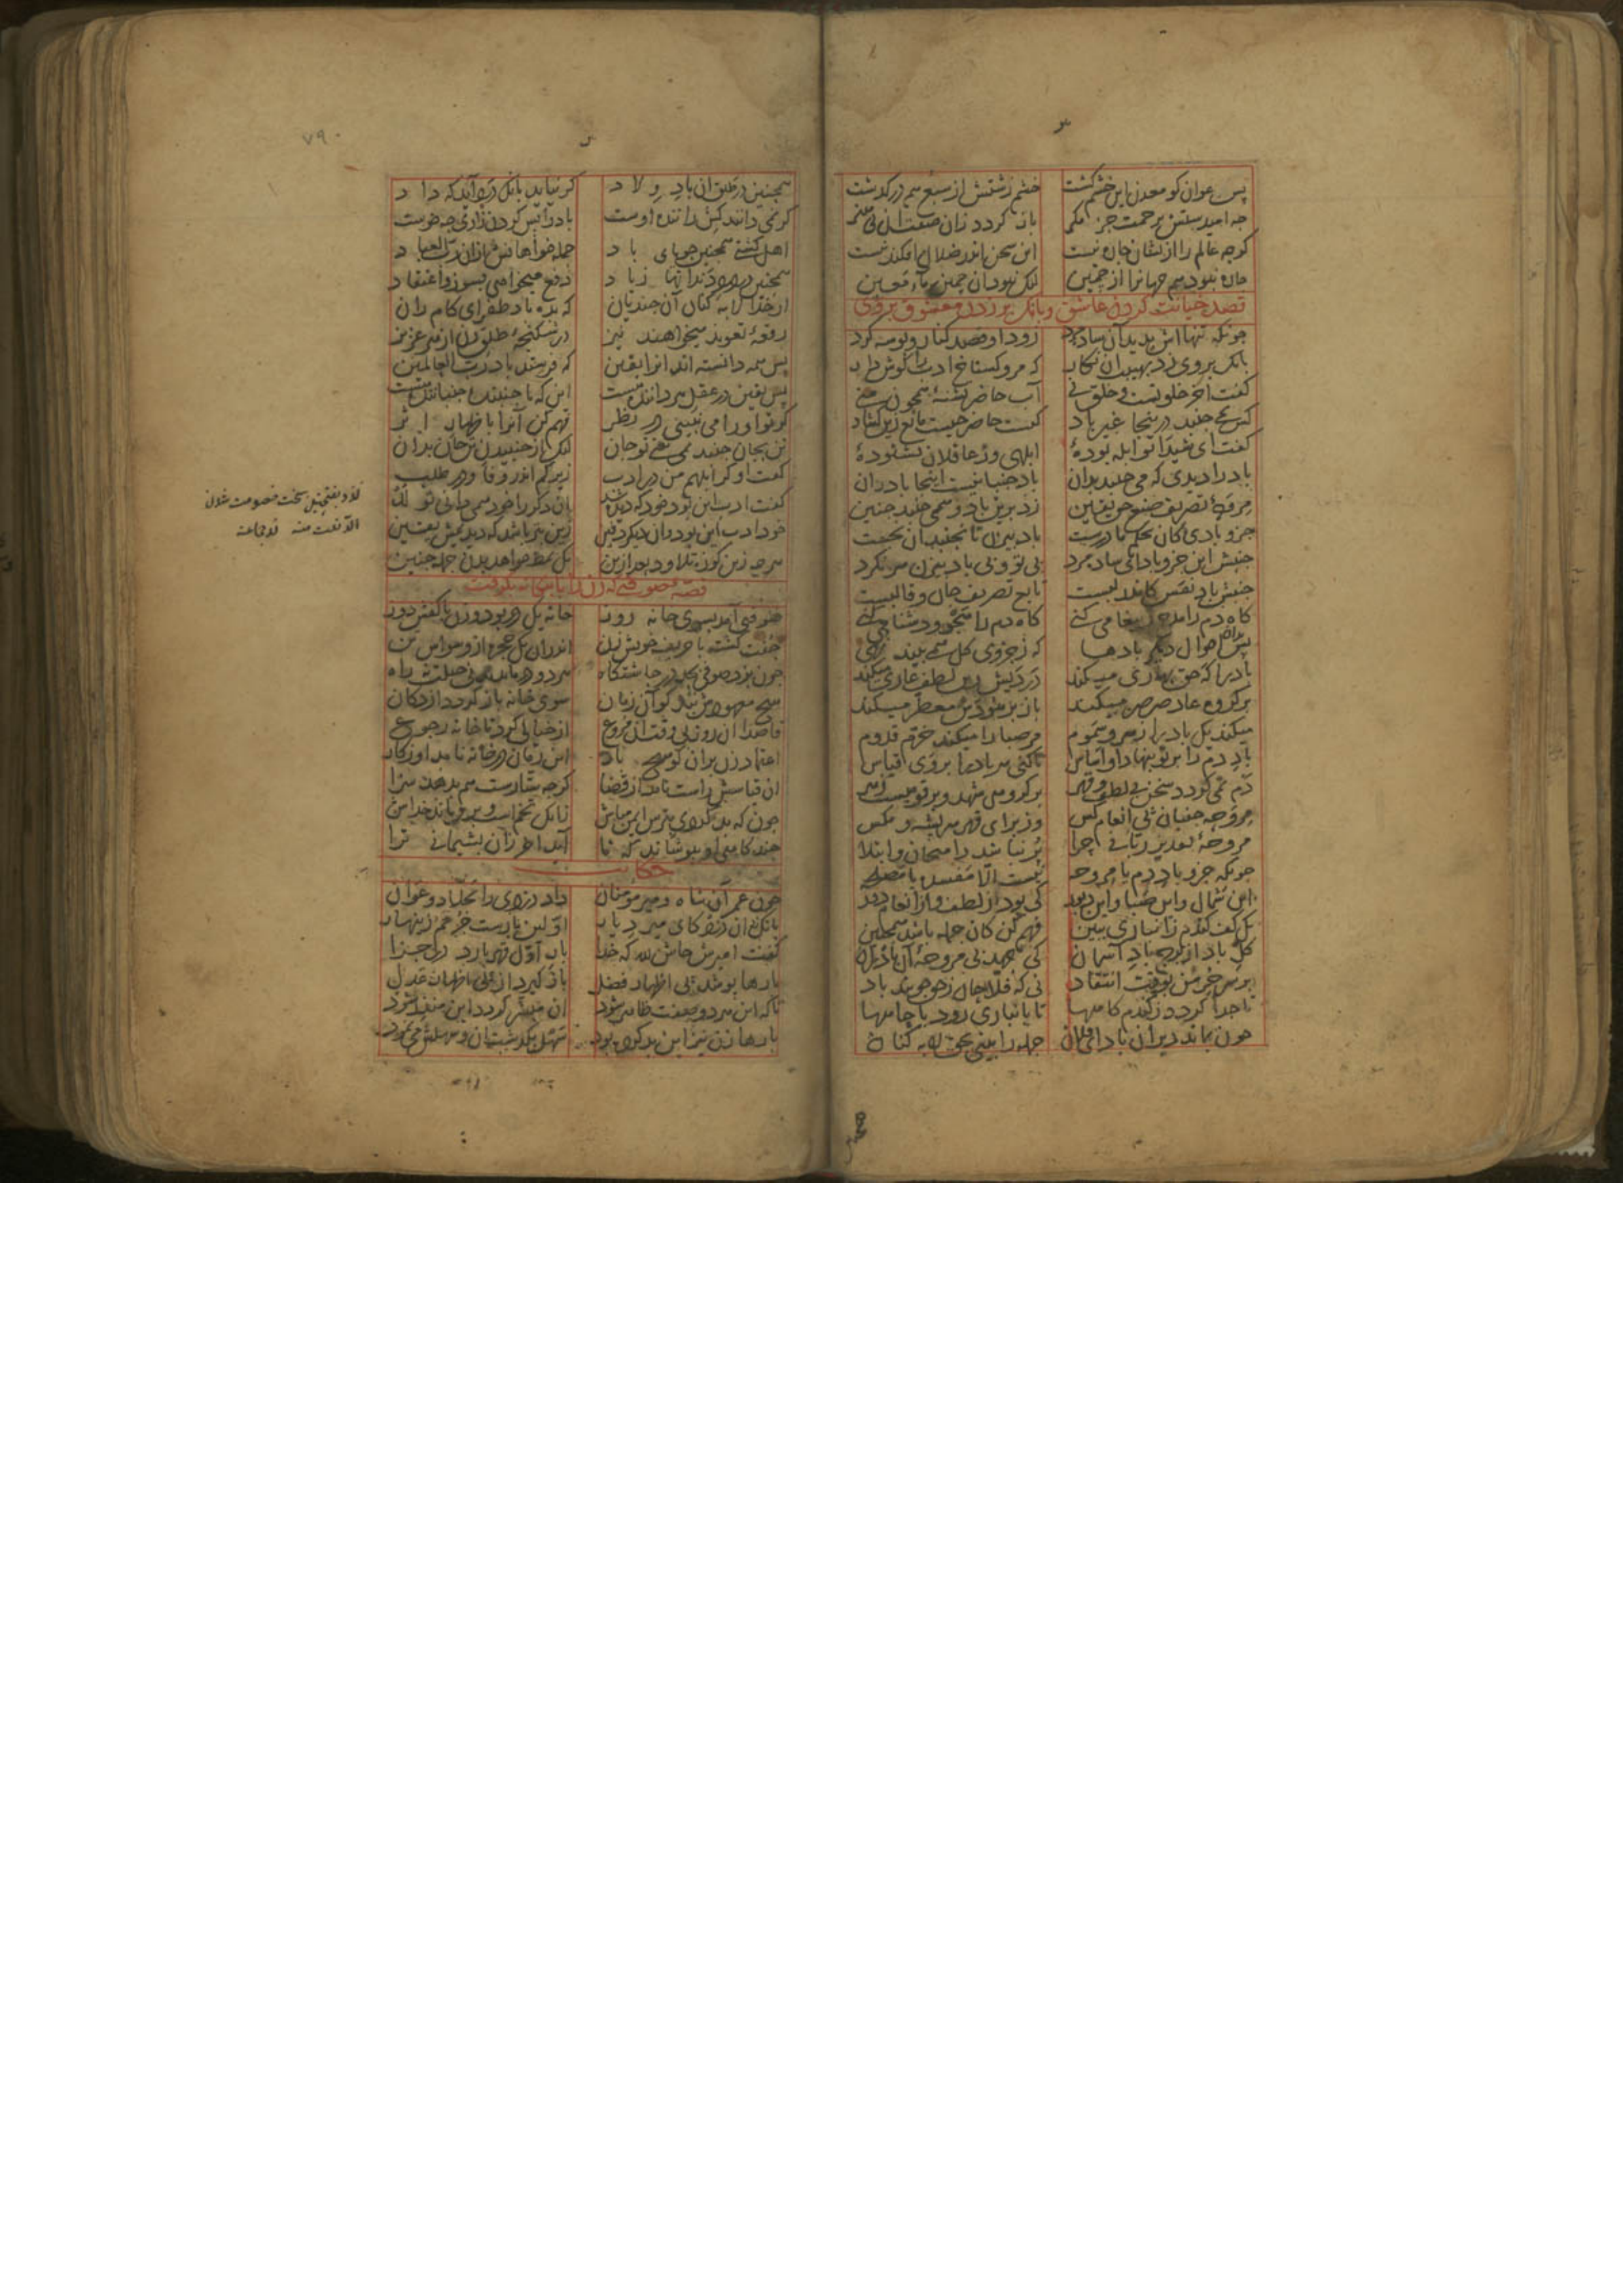 پس عوان کو معدن این خشم کشت خشم زشتش از سبع هم در کذشت
چه امیدستش برحمت جز مکر باز کردد زان صفت آن بی هنر
کرچه عالم را ازیشان چاره نیست این سخن اندر ضلال افکند نیست
چاره نبود هم جهانرا از چمین لیک نبود آن چمین ماء معین
قصد خیانت کردن عاشق و بانک بر زدن معشوق بر وی
چونکه تنهااش بدید آن ساده مرد زود او قصد کنار و بوسه کرد
بانک بر وی زد بهیبت آن نکار که مرو کستاخ ادب را کوش دار
کفت آخر خلوتست و خلق نی آب حاضر تشنهٔ همچون منی
کس نمی جنبد درینجا غیر باد کیست حاضر چیست مانع زین کشاد
کفت ای شیدا تو ابله بودهٔ ابلهی وز عاقلان نشنودهٔ
باد را دیدی که می جنبد بدان باد جنبانیست اینجا بادران
مروحهٔ تصریف صنع حق یقین زد برین باد و همی جنبد چنین
جزو بادی کان بحکم ما درست باد بیزن تا نجنبد آن نجست
جنبش این جزو باد ای ساده مرد بی تو و بی باد بیزن سر نکرد
جنبش باد نفس کاندر لبست تابع تصریف جان و قالبست
کاه دم را مدح و پیغامی کنی کاه دم را هجو و دشنامی کنی
پس بدان احوال دیکر بادها که ز جزوی کل می بیند نهی
باد را که حق بهاری میکند در دیش زین لطف عاری میکند
بر کروه عاد صرصر میکند باز بر هودش معطر میکند
میکند یک باد را زهر سموم مر صبا را میکند خرم قدوم
باد دم را بر تو بنهاد او اساس تا کنی هر باد را بر وی قیاس
دم نمی کردد سخن بی لطف و قهر بر کروهی شهد و بر قومیست زهر
مروحه جنبان پی انعام کس وز برای قهر هر پشه و مکس
مروحهٔ تقدیر ربانی چرا پر نباشد ز امتحان و ابتلا
چونکه جزو باد دم یا مروحه نیست الا مفسده یا مصلحه
این شمال و این صبا و این دبور کی بود از لطف و از انعام دور
یک کف کندم ز انباری ببین فهم کن کان جمله باشد همچنین
کل باد از برج باد آسمان کی جهد بی مروحهٔ آن باد ران
بر سر خرمن بوقت انتقاد نی که فلاحان ز حق جویند باد
تا جدا کردد ز کندم کاهها تا بانباری رود یا چاهها
چون بماند دیر آن باد وزان جمله را بینی بحق لابه کنان
همچنین در طلق آن باد ولاد کر نیاید بانک درد آید که داد
کر نمی دانند کش راننده اوست باد را پس کردن زاری چه خوست
اهل کشتی همچنین جویای باد جمله خواهانش ازان رب العباد
همچنین در درد دندانها ز باد دفع میخواهی بسوز و اعتقاد
از خدا لابه کنان آن جندیان که بده باد ظفر ای کام ران
رقعهٔ تعویذ میخواهند نیز در شکنجهٔ طلق زن از هر عزیز
پس همه دانسته اند آنرا یقین که فرستد باد رب العالمین
پس یقین در عقل هر داننده هست این که با جنبنده جنباننده هست
کر تو او را می نبینی در نظر فهم کن آنرا باظهار اثر
تن بجان جنبد نمی بینی تو جان لیک از جنبیدن تن جان بدان
کفت او کر ابلهم من در ادب زیرکم اندر وفا و در طلب
کفت ادب این بود خود که دیده شد آن دکر را خود همی دانی تو لد
خود ادب این بود و آن دیکر دفین زین بتر باشد که دیدیمش یقین
هر چه زین کوزه تلاود بعد ازین یک نمط خواهد بدن جمله چنین
لدد بفتحتین سخت خصومت شدن
قصهٔ صوفی که زن را با بیکانه بکرفت
صوفی آمد بسوی خانه روز خانه یک در بود و زن با کفش دوز
جفت کشته با حریف خویش زن اندران یک حجره از وسواس تن
چون بزد صوفی بجد در چاشتکاه هر دو درماندند نی حیلت نه راه
هیچ معهودش نبد کو آن زمان سوی خانه باز کردد از دکان
قاصدا آن روز بی وقت آن مروع از خیالی کرد تا خانه رجوع
اعتماد زن بران کو هیچ بار این زمان در خانه نامد او ز کار
آن قیاسش راست نامد از قضا کرچه ستارست هم بدهد سزا
چون که بد کردی بترس ایمن مباش زانک تخمست و برویاند خداش
چند کاهی او بپوشاند که تا آید آخر زان پشیمانی ترا
حکایت
چون عمر آن شاه و میر مؤمنان داد دزدی را بجلاد و عوان
بانک زد آن دزد کای میر دیار اولین بارست جرمم زینهار
کفت امیرش حاش لله که خدا بار اول قهر بارد در جزا
بارها پوشد پی اظهار فضل باز کیرد از پی اظهار عدل
تا که این هر دو صفت ظاهر شود آن مبشر کردد این منذر شود
بارها زن نیز این بد کرده بود سهل بکذشت آن و سهلش می نمود